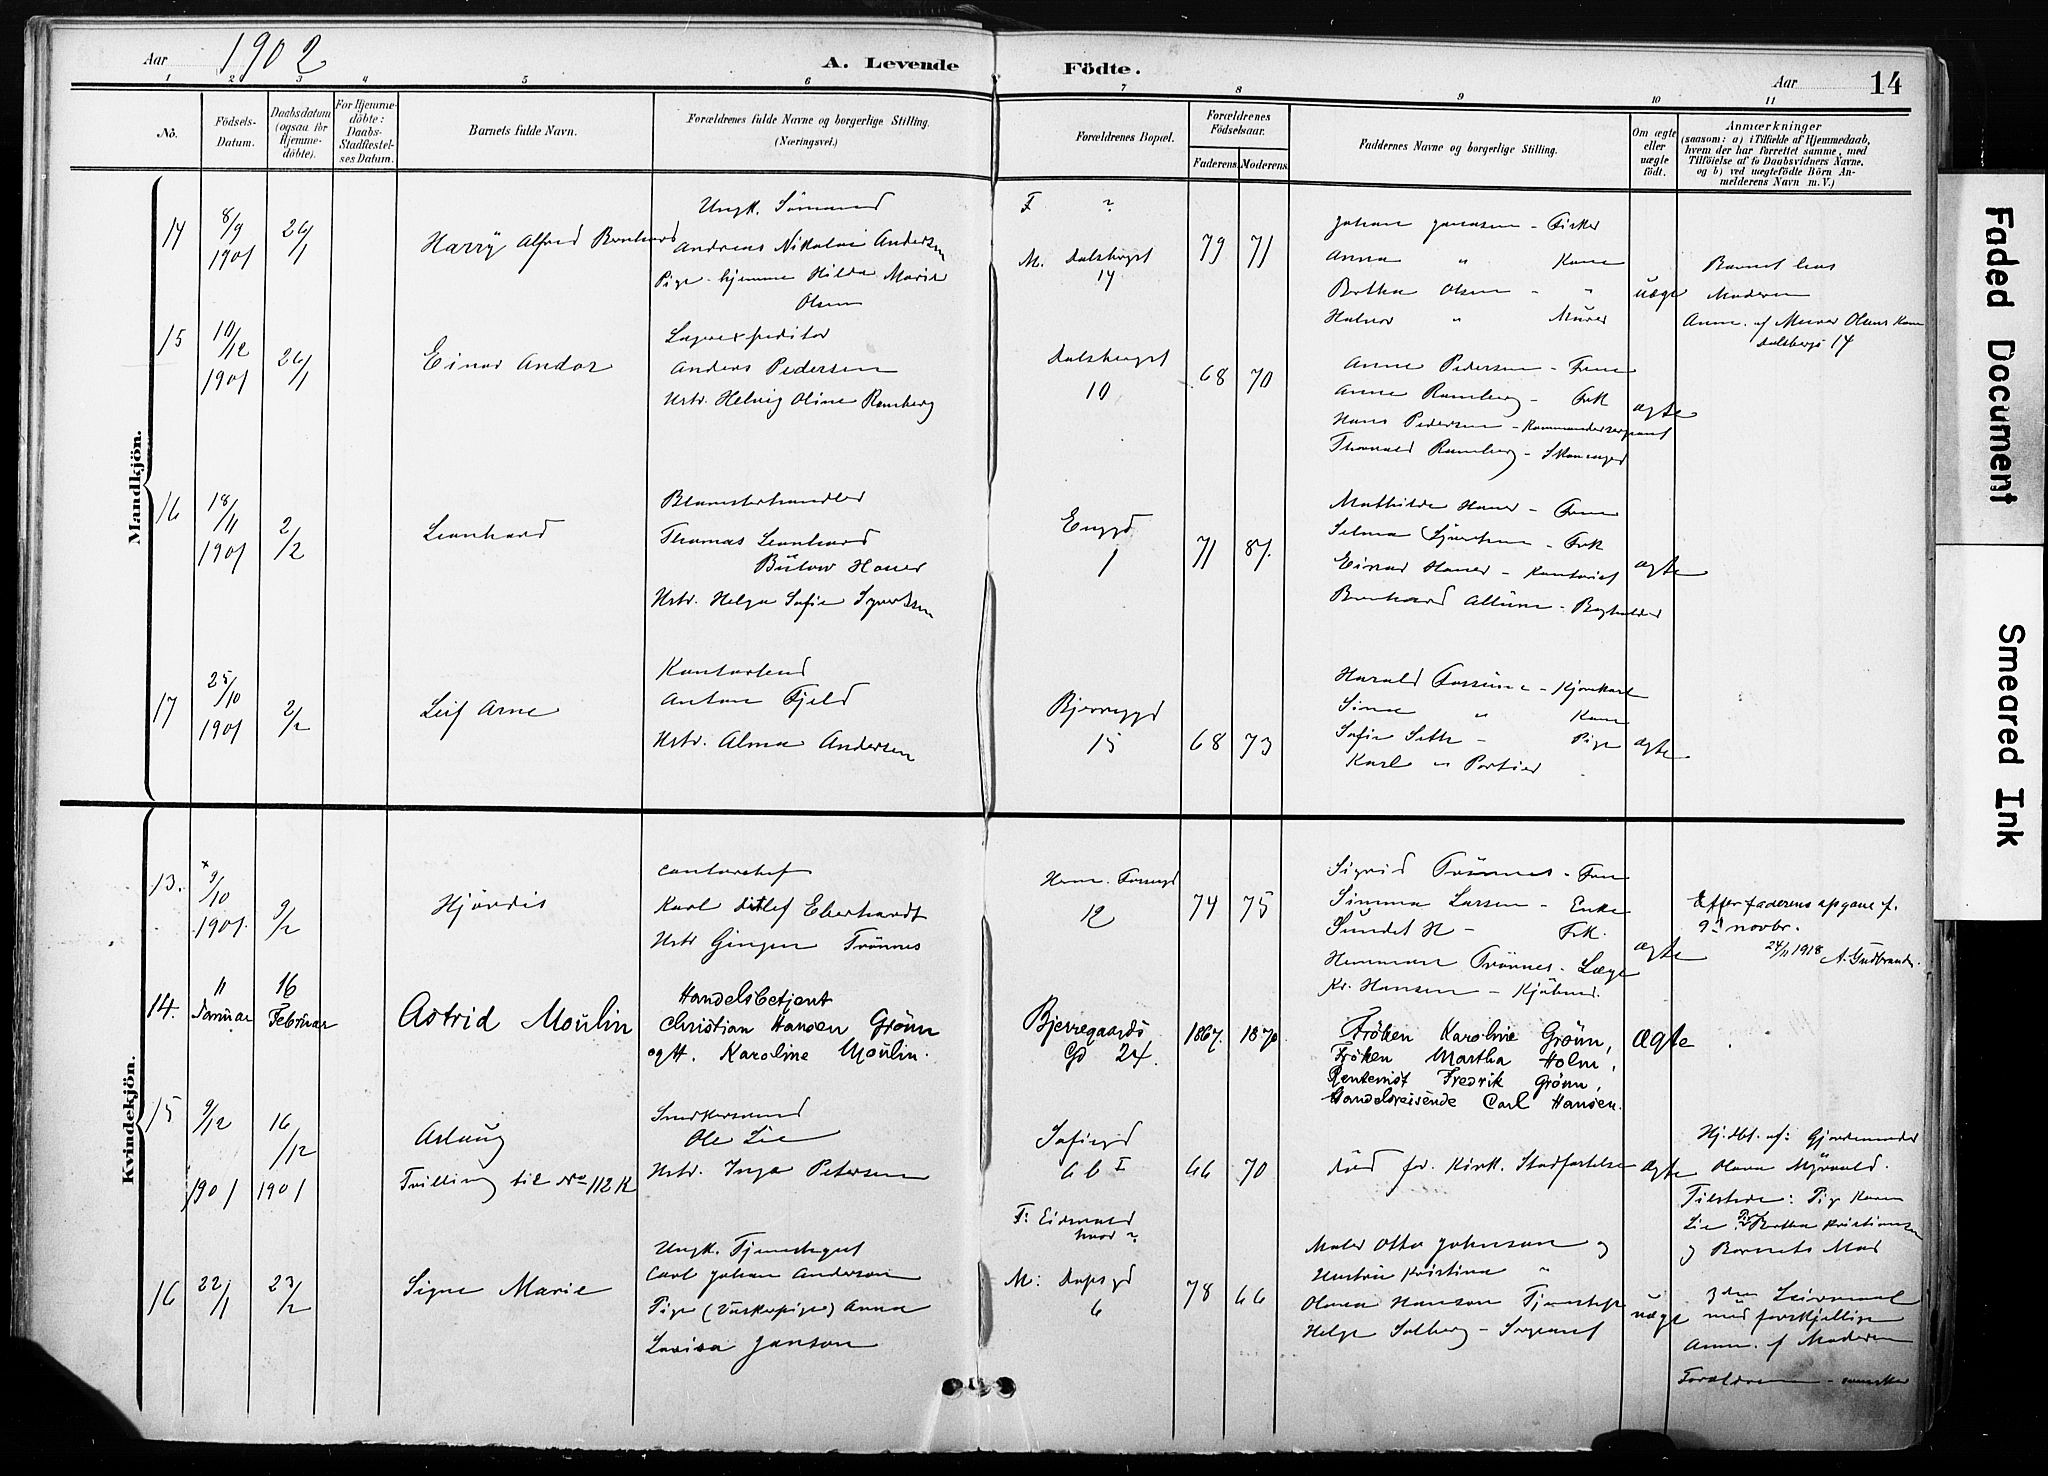 Aar 1902
A. Levende Födte.
Aar 14
1 2 3 4 5 6 7 8 9 10 11
No.
Födsels-
Datum.
Daabsdatum
(ogsaa for
Hjemme-
döbte).
For Hjemme-
döbte:
Daabs-
Stadfæstel-
ses Datum.
Barnets fulde Navn.
Forældrenes fulde Navne og borgerlige Stilling.
(Næringsvei.)
Forældrenes Bopæl.
Forældrenes
Födselsaar.
Faderens. Moderens.
Faddernes Navne og borgerlige Stilling.
Om ægte
eller
uægte
födt.
Anmærkninger
(saasom: a) i Tilfælde af Hjemmedaab,
hvem der har forrettet samme, med
Tilföielse af to Daabsvidners Navne,
og b) ved uægtefödte Börn An-
melderens Navn m. V.)
Mandkjön.
14
8/9
1901
26/1
Harry Alfred Bernhard
Ungk. Sömand
Andreas Nikolai Andersen
Pige hjemme Hilda Marie
Olsen
F ?
M. Dalsbergst
14
79 71
Johan Jonassen - Fisker
Anna " Kone
Bertha Olsen - "
Halvor " Murer
uægte
Barnet hos
Moderen
Anm. af Murer Olsens Kone
Dalsbergs 14
15
10/12
1901
26/1
Einar Andor
Lagerexpeditør
Anders Pedersen
Hstr. Helvig Oline Ramberg
Dalsbergst
10
68 70
Anne Pedersen - Frue
Anne Ramberg - Frk
Hans Pedersen - Kommandersergeant
Thorvald Ramberg -
ægte
16
18/11
1901
2/2
Leonhard
Blomsterhandler
Thomas Leonhard
Bülow Hauer
Hstr. Helga Sofie Syvertsen
Enggd
1
71 87.
Mathilde Hauer - Frue
Selma Syvertsen - Frk
Einar Hauer - Kontorist
Bernhard - Bogholder
ægte
17
25/10
1901
2/2
Leif Arne
Kontorbud
Anton Fjeld
Hstr. Alma Andersen
Bjerregd
15
68 73
Harald Fossum - Kjørekarl
Sina " Kone
Sofie Seth - Pige
Karl " Portier
ægte
Kvindekjön.
13.
x
9/10
1901.
9/2
Hjördis
Contorchef
Karl Ditlef Eberhardt
Hstr Gingen Trönnes
12
74 75
Sigrid Trönnes - Frue
Simma Larsen - Enke
Sundet H - Frk.
Hemman Trönnes - Læge
Kr. Hansen - Kjøbmd.
ægte
Efter faderens opgave f.
9. novbr.
24/11 1918 A. Gudbrands.
14.
11
Januar
16
Februar
Astrid Moulin
Handelsbetjent
Christian Hansen Grönn
og H. Karoline Moulin.
Bjerregaards
Gd 24.
1867. 1870
Fröken Karoline Grönn,
Fröken Martha Holm,
Rentenist Fredrik Grönn,
Handelsreisende Carl Hansen.
ægte
15
9/12
1901
16/12
1901
Aslaug
Tvilling til No 112 K
Snedkersvend
Ole Lie
Hstr. Inga Petersen
Sofiegd
66 I
66 70
död før Kirk. Stadfæstelse
ægte
Hj.dbt. af: Gjordemoder
Olava Myrvold.
Tilstede: Pige Karen
Lie, Pige Bertha Kristiansen
og Barnets Mor
16
22/1
23/2
Signe Marie
Ungk. Tjenestegut
Carl Johan Anderson
Pige (Vaskerpige) Anna
Lovisa Janson
F: Eidsvold
hvor?
M: Dopsgd
6
78 66
Maler Otto Johnson og
Hustru Kristina "
Olava Hanson Tjenestepi
Helge Solberg - Sergeant
uægte
3 dre Leiermaal
med forskjellige
Anm. af Moderen
Forældrene - svensker
Faded Document
Smeared Ink